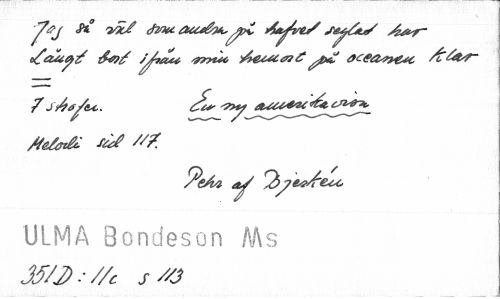 Jag så väl som andra på hafvet seglat har
Långt bort ifrån min hemort på oceanen klar
7 strofer. En ny amerikavisa
Melodi sid 117.
Pehr af Bjerkén
ULMA Bondeson Ms
351D:11c s 113